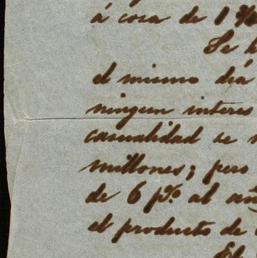 á cosa de 1
Se
el mismo dia
ningun interes
casualidad se
millones; pero
de 6 p% al añ
el producto de
El